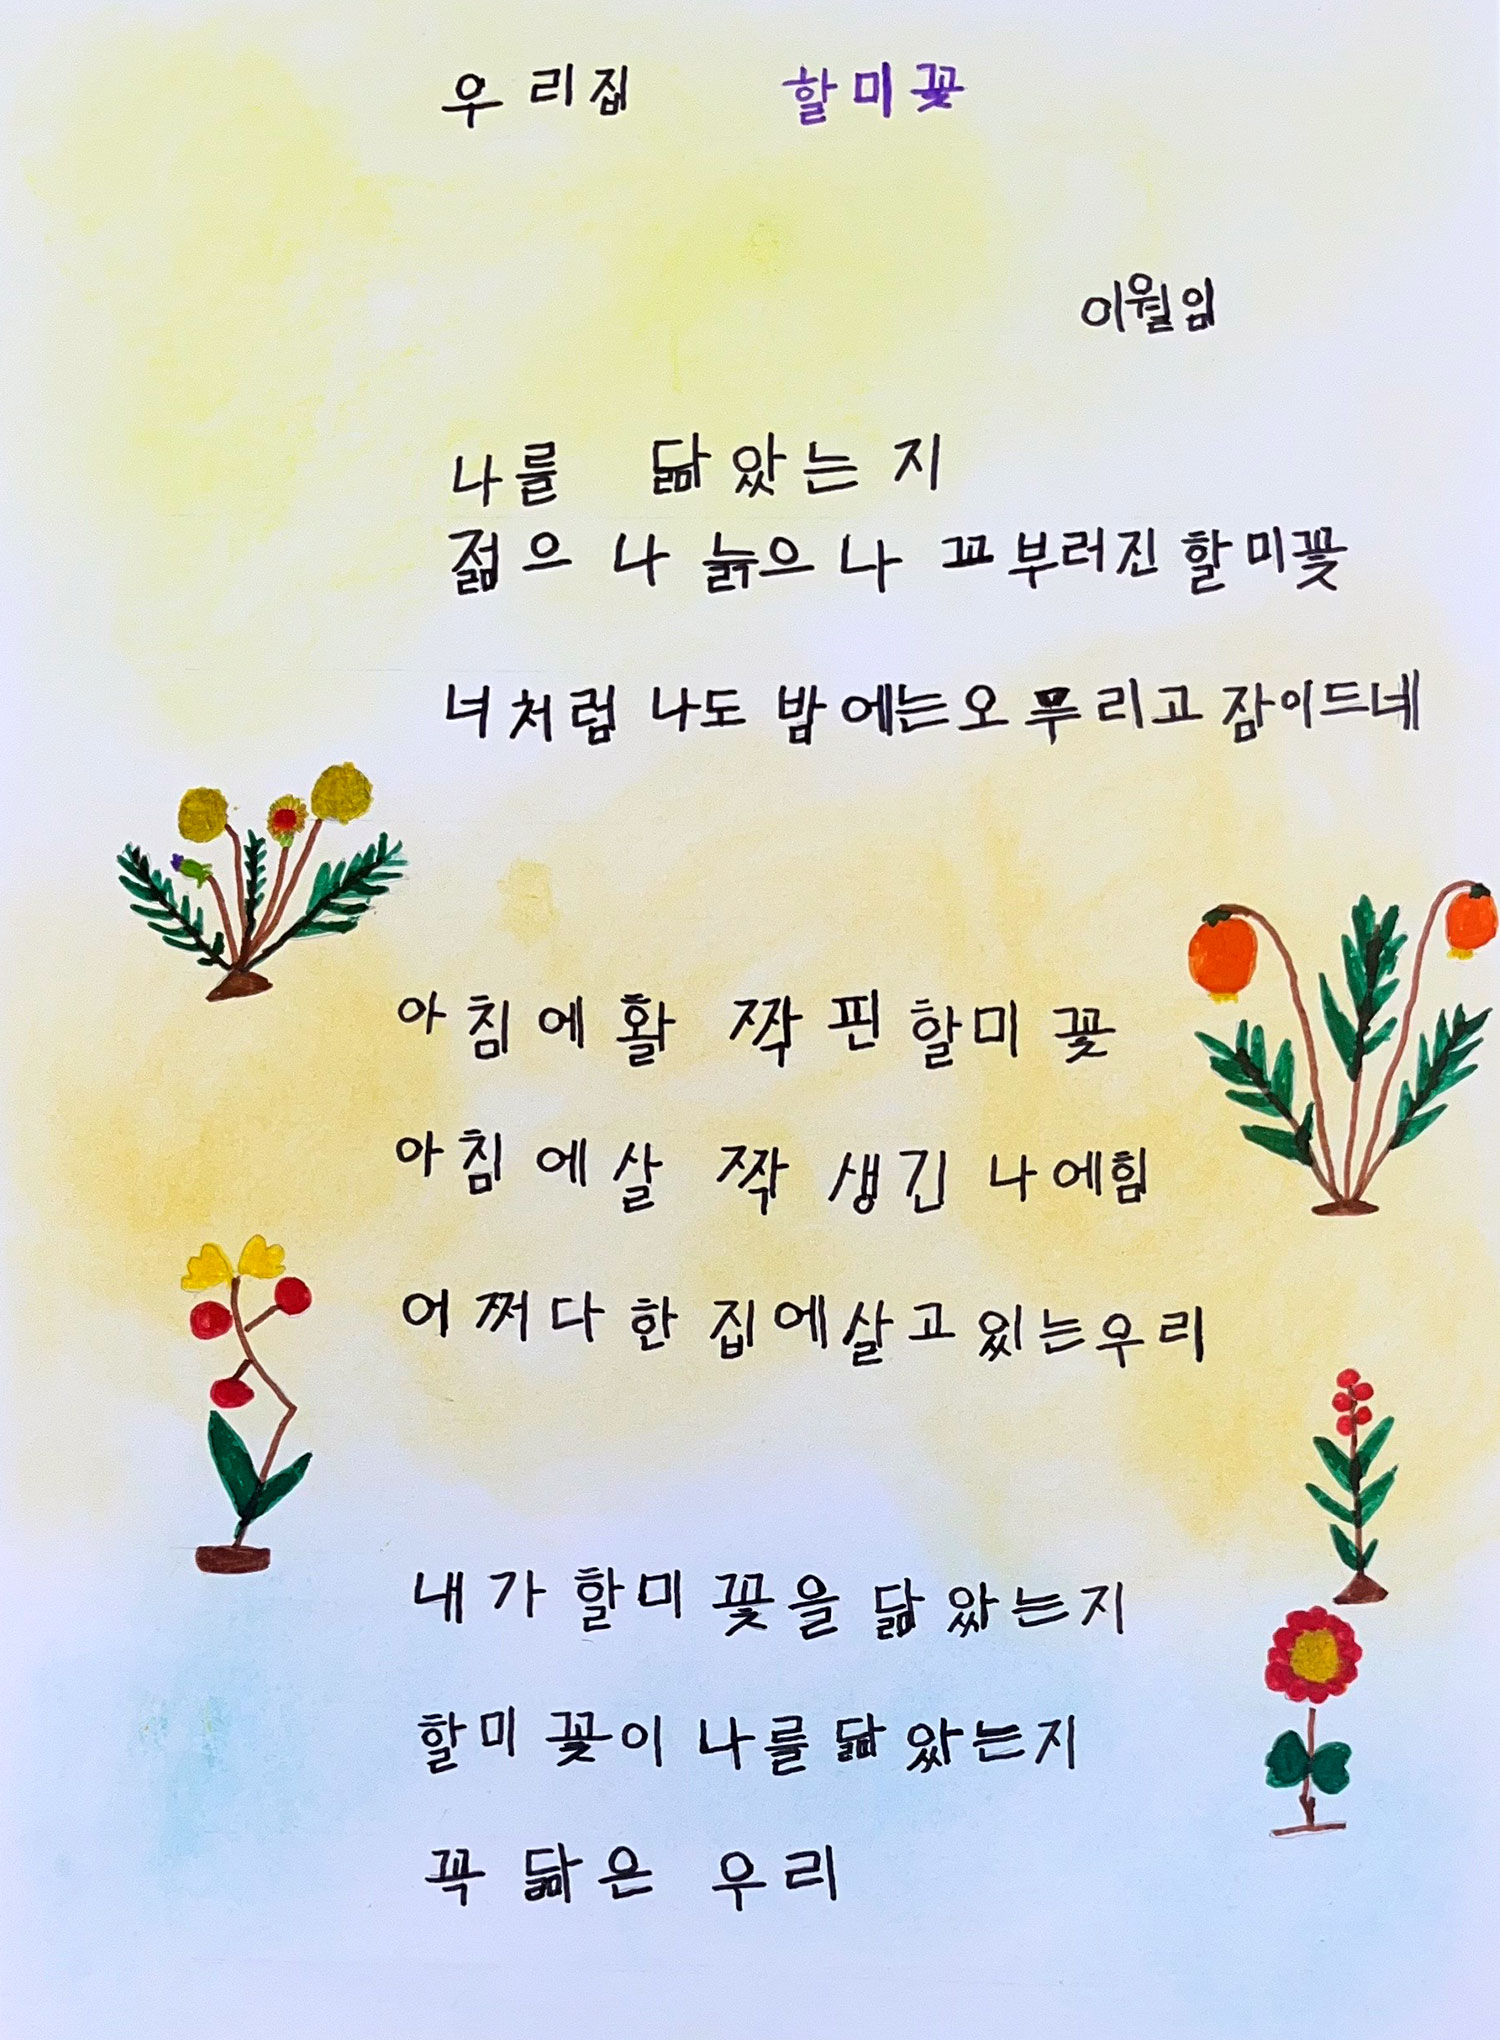 우리집 할미꽃
이월임
나를 닮았는지
젊으나 늙으나 꼬부러진 할미꽃
너처럼 나도 밤에는 오무리고 잠이드네
아침에 활짝 핀 할미꽃
아침에 살짝 생긴 나에힘
어쩌다 한집에 살고 있는 우리
내가 할미꽃을 닮았는지
할미꽃이 나를 닮았는지
꼭 닮은 우리